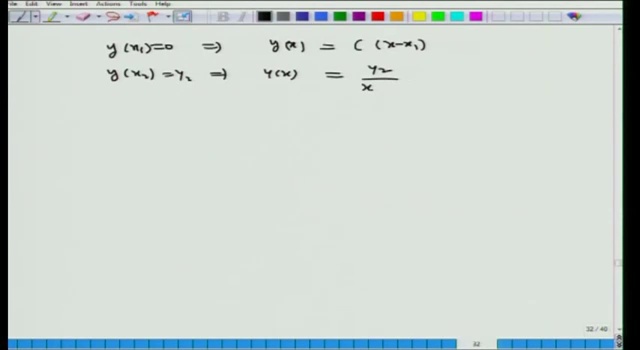 Edit View Insert Actions Tools Help
y(x₁)=0 ⇒ y(x) = C (x-x₁)
y(x₂)=y₂ ⇒ y(x) = y₂/x
32 / 40
32